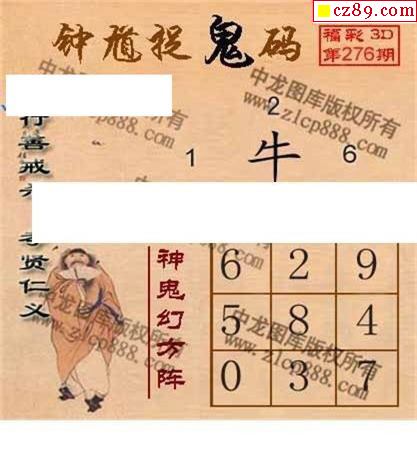 cz89.com
钟馗捉鬼码
福彩3D
第276期
2
1 牛 6
行善戒
贤仁义
神鬼幻方阵
6 2 9
5 8 4
0 3 7
中龙图库版权所有
www.zlcp888.com
中龙图库版权所有
www.zlcp888.com